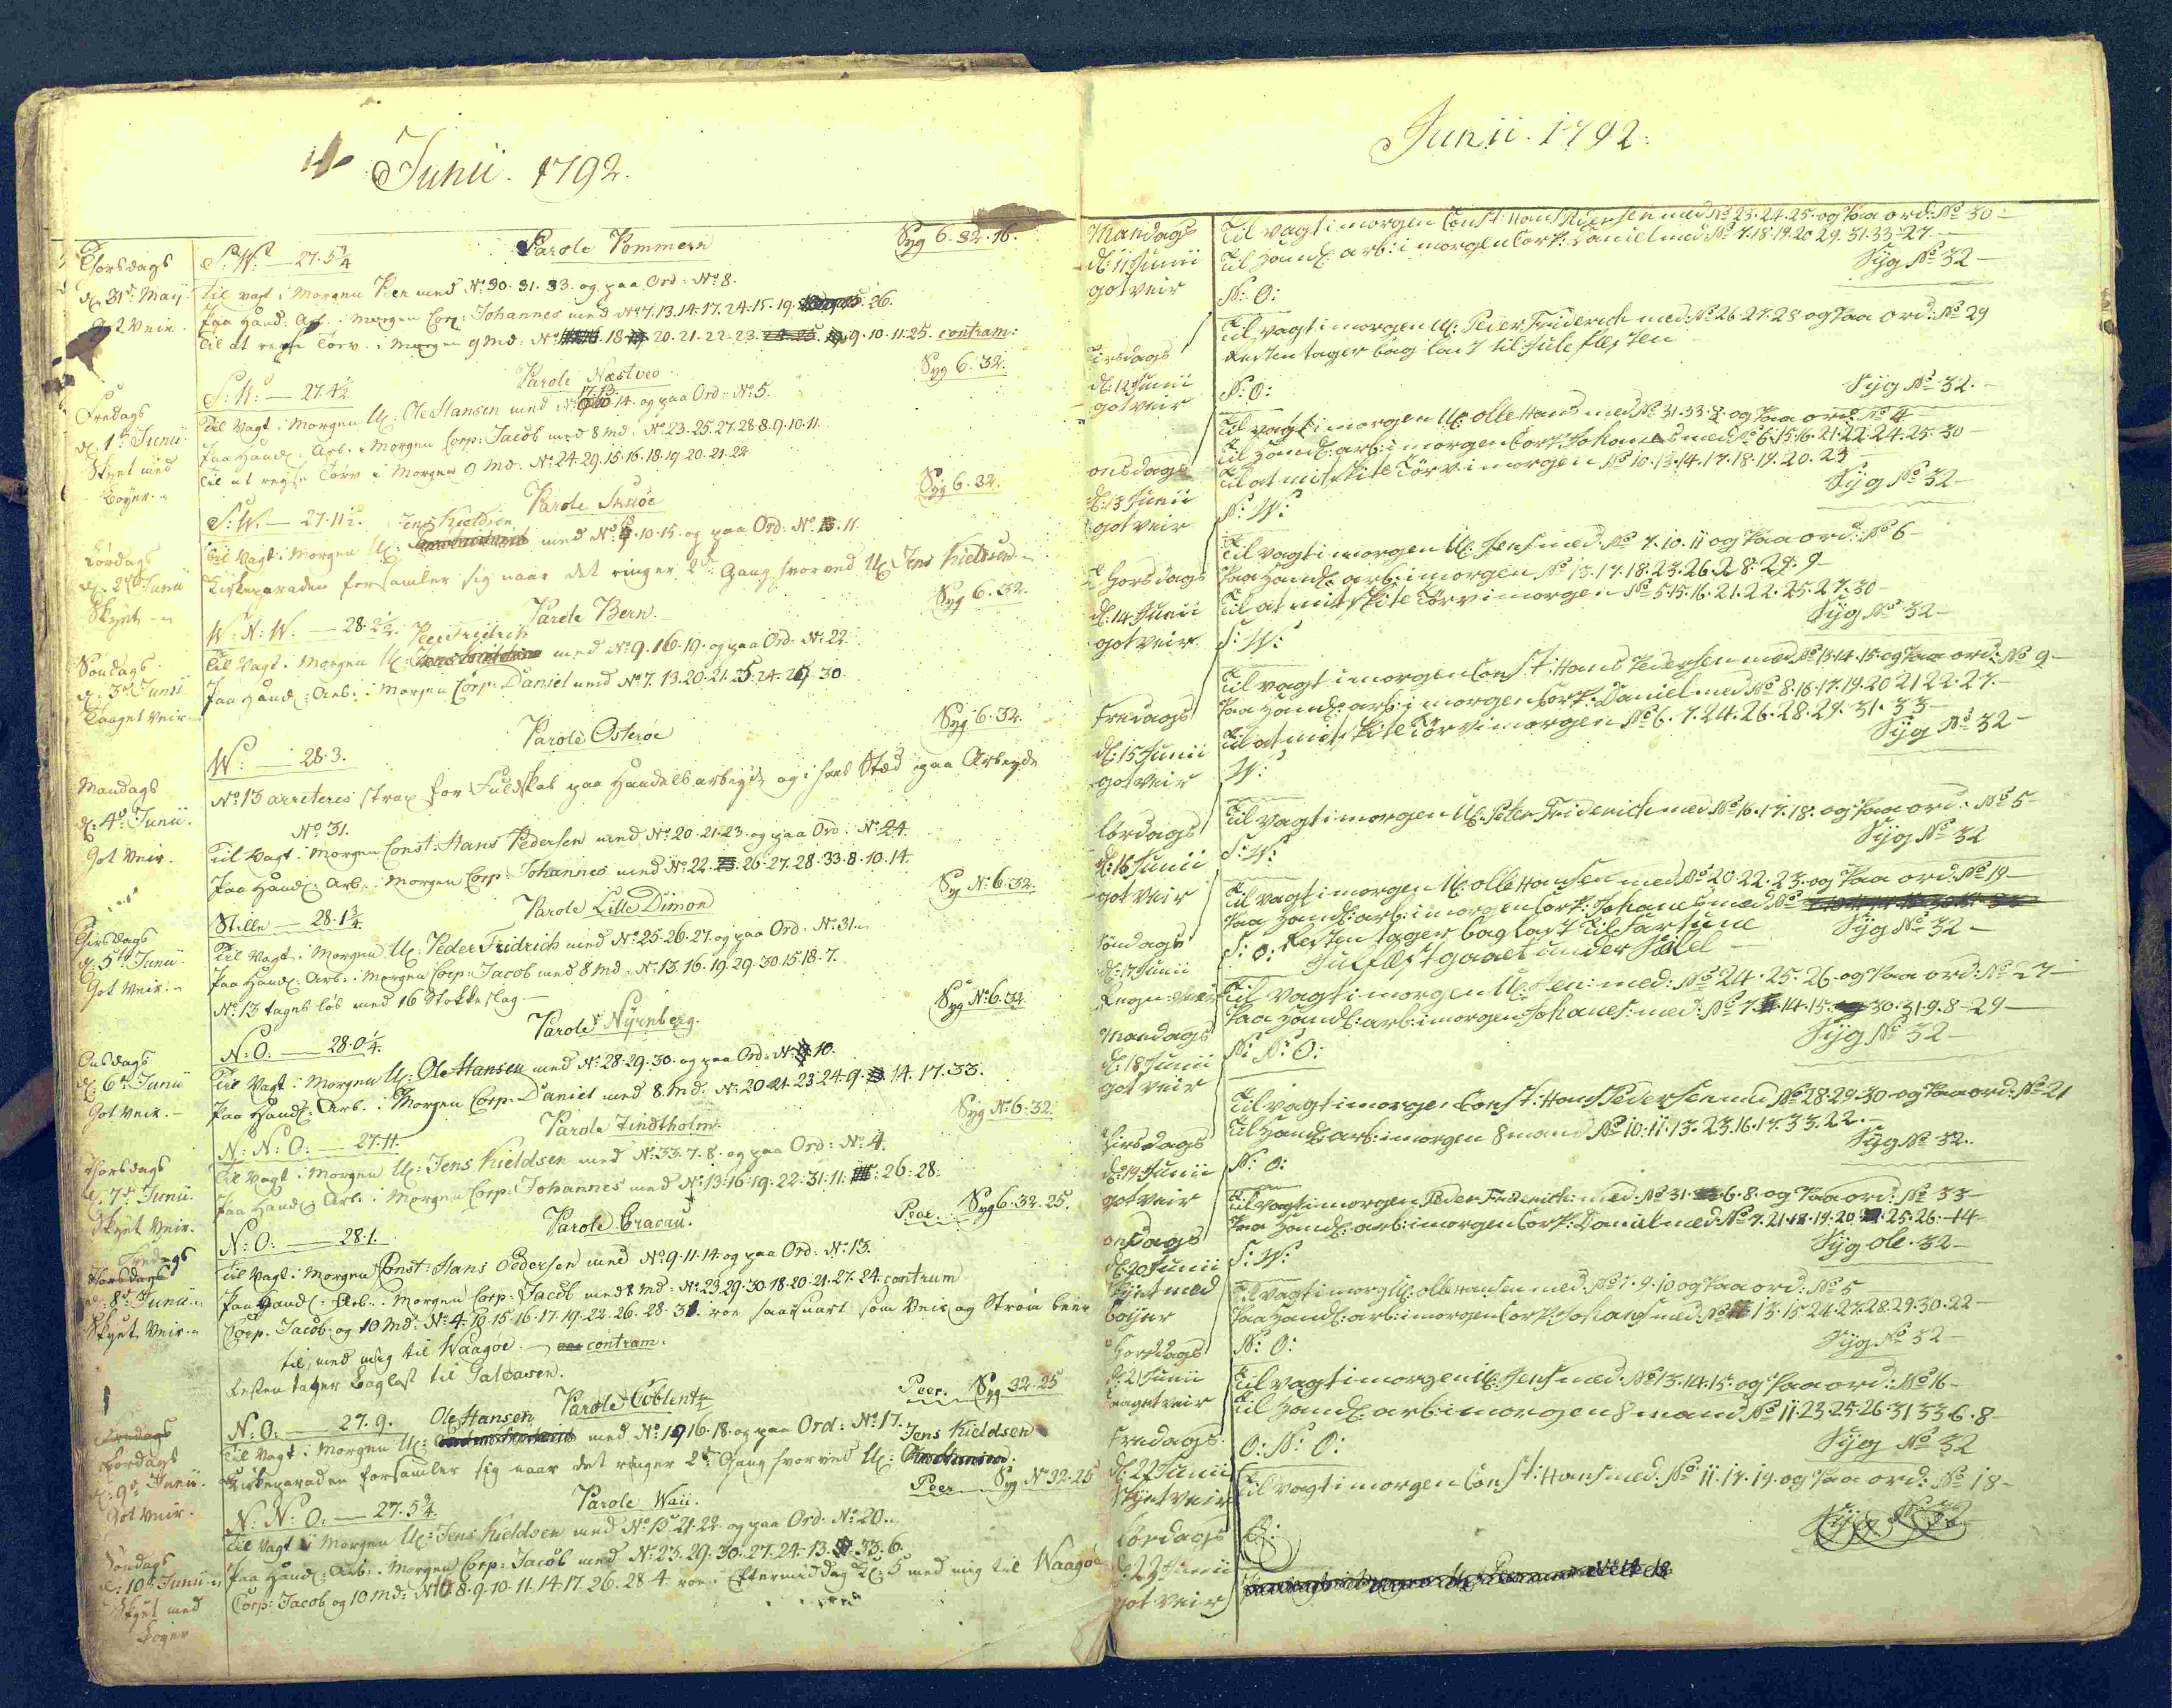 Junii. 1792.
Torsdags
d: 31t May
Got Veir.
S: W: — 27. 5 3/4
Parole Pommern
Syg 6. 32. 16.
Til vagt i Morgen Peer med No 30. 31. 33. og paa Ord: No 8.
Paa Hand: Arb. i Morgen Corp: Johannes med No 7. 13. 14. 17. 24. 15. 19. 26.
Til at reyse Törv i Morgen 9 Md: No 18. 20. 21. 22. 23. 9. 10. 11. 25. contram:
Fredags
d: 1t Junii
Skyet med
Bøyer
S: W: — 27. 4 1/2
Parole Næstved
Syg 6. 32.
Til Vagt i Morgen U: Ole Hansen med No 17. 13. 14. og paa Ord: No 5.
Paa Handl: Arb. i Morgen Corp: Jacob med 8 md: No 23. 25. 27. 28. 8. 9. 10. 11.
Til at reyse Törv i Morgen 9 Md. No 24. 29. 15. 16. 18. 19. 20. 21. 22
Lørdags
d: 2d Junii
Skyet
S: W. — 27. 11 1/2.
Parole Skuøe
Syg 6. 32.
Til Vagt i Morgen U: Jens Kieldsen med No 10. 15. og paa Ord: No 11.
Kirkeparaden forsamler sig naar det ringer 2d Gang hvorved U: Jens Kieldsen
Søndags
d: 3d Junii
Taaget Veir
W: N: W. — 28. 2 1/2.
Parole Bern.
Syg 6. 32.
Til Vagt i Morgen U: Peer Fridrich med No 9. 16. 19. og paa Ord: No 22
Paa Hand: Arb: i Morgen Corp: Daniel med No 7. 13. 20. 21. 25. 24. 30.
Mandags
d: 4d Junii.
Got Veir.
W: — 28. 3.
Parole Osterøe
Syg 6. 32.
No 13 arreteres strax for Fuldskab paa Handelsarbeyde og i hans Stæd paa Arbeyde
No 31.
Til Vagt i Morgen Const: Hans Pedersen med No 20. 21. 23. og paa Ord: No 24.
Paa Handl: Arb. i Morgen Corp: Johannes med No 22. 26. 27. 28. 33. 8. 10. 14.
Tirsdags
d: 5t Junii
Got Veir.
Stille — 28. 1 3/4
Parole Lille Dimon
Syg No 6. 32.
Til Vagt i Morgen U: Peder Fridrich med No 25. 26. 27. og paa Ord. No 31.
Paa Handl: Arb: i Morgen Corp: Jacob med 8 md: No 13. 16. 19. 29. 30. 15. 18. 7.
No 13 tages løs med 16 Stokkeslag —
Onsdags
d: 6t Junii
Got Veir.
N: O. — 28. 0 1/4.
Parole Nyrnberg.
Syg No 6. 32
Til Vagt i Morgen U: Ole Hansen med No 28. 29. 30. og paa Ord: No 10.
Paa Handl: Arb. i Morgen Corp: Daniel med 8 md: No 20. 21. 23. 24. 9. 14. 17. 33.
Torsdags
d: 7d Junii.
Skyet Veir.
N: N: O: — 27. 11.
Parole Tindholm.
Syg No 6. 32.
Til Vagt i Morgen U: Jens Kieldsen med No 33. 7. 8. og paa Ord: No 4.
Paa Handl: Arb: i Morgen Corp: Johannes med No 13. 16. 19. 22. 31. 11. 26. 28.
Fredags
d: 8d Junii
Skyet Veir
N: O: — 28. 1.
Parole Cracau.
Peer. Syg 6. 32. 25.
Til Vagt i Morgen Const: Hans Pedersen med No 9. 11. 14. og paa Ord: No 13.
Paa Handl: Arb. i Morgen Corp: Jacob med 8 md: No 23. 29. 30. 18. 20. 21. 27. 24. contram
Corp. Jacob og 10 md: No 4. 10. 15. 16. 17. 19. 22. 26. 28. 31. roe saasnart som Veir og Strøm beer
til, med mig til Waagøe. contram.
Resten tager Baglast til Galeasen.
Lørdags
d: 9d Junii.
Got Veir.
N: O: — 27. 9.
Parole Coblentz
Peer. Syg 32. 25
Til Vagt i Morgen U: Ole Hansen med No 19. 16. 18. og paa Ord: No 17.
Kirkeparaden forsamler sig naar det ringer 2d Gang hvorved U: Jens Kieldsen
Søndags
d: 10d Junii
Skyet med
Bøyer
N: N: O: — 27. 5 3/4.
Parole Waii.
Peer Syg No 32. 25
Til Vagt i Morgen U: Jens Kieldsen med No 15. 21. 22. og paa Ord: No 20.
Paa Handl: Arb: i Morgen Corp: Jacob med No 23. 29. 30. 27. 24. 13. 33. 6.
Corp: Jacob og 10 md: No 8. 9. 10. 11. 14. 17. 26. 28. 4 roe i Eftermiddag Kl: 5 med mig til Waagøe
Junii. 1792:
Mandags
d: 11 Junii
got veir
Til vagt i morgen Const: Hans Pedersen med No 23. 24. 25. og Paa ord: No 30 –
Til Handl: arb: i morgen Corp: Daniel med No 7. 18. 19. 20. 29. 31. 33. 27 –
Syg No 32 –
N: O:
Tirsdags
d: 12 Junii
got veir
Til vagt i morgen U: Peder Friderich med No 26. 27. 28 og Paa ord: No 29
Resten tager bag last til Jule
Syg No 32. –
N: O:
onsdags
d: 13 Junii
got veir
Til vagt i morgen U: olle Hans med No 31. 33. og Paa ord: No 4 –
Til Handl: arb: i morgen Corp Johanes med No 6. 15. 16. 21. 22. 24. 25. 30 –
Til at Törv i morgen No 10. 13. 14. 17. 18. 19. 20. 23
Syg No 32 –
N: W:
Thorsdags
d: 14 Junii
got veir
Til vagt i morgen U: Jens med No 7. 10. 11 og Paa ord: No 6 –
Paa Handl: arb: i morgen No 13. 17. 18. 23. 26. 28. 29. 9 –
Til at Törv i morgen No 5. 15. 16. 21. 22. 25. 27. 30 –
Syg No 32 –
S: W:
fredags
d: 15 Junii
got veir
Til vagt i morgen Const: Hans Pedersen med No 13. 14. 15. og Paa ord: No 9 –
Paa Handl: arb: i morgen Corp: Daniel med No 8. 16. 17. 19. 20 21 22. 27. –
Til at Törv i morgen No 6. 7. 24. 26. 28. 29. 31. 33 –
Syg No 32 –
W:
lørdags
d: 16 Junii
got veir
Til vagt i morgen U: Peter Friderich med No 16. 17. 18. og Paa ord: No 5 –
Syg No 32
S: W:
Til vagt i morgen U: olle Hansen med No 20. 22. 23. og Paa ord: No 19 –
Paa Handl: arb: i morgen Corp: Johanes med No
Resten tager bag last til
Syg No 32 –
søndags
d: 17 Junii
Regn
S: O:
gaaet under Seiel –
Til vagt i morgen U: med: No 24. 25. 26. og Paa ord: No 27 –
Paa Handl: arb: i morgen Johanes: med: No 7. 14. 15. 30. 31. 9. 8 – 29 –
Syg No 32 –
Mandags
d: 18 Junii
got veir
N: N: O:
Til vagt i morgen Const: Hans Pedersen med No 28. 29. 30 og Paa ord: No 21
Til Handl: arb: i morgen 8 mand No 10. 11. 13. 23. 16. 17. 33. 22. –
Syg No 32.
Tirsdags
d: 19 Junii
got veir
N: O:
Til vagt i morgen Peder Friderich: med No 31. 6. 8. og Paa ord: No 33 –
Paa Handl: arb: i morgen Corp: Daniel med: No 7. 21. 18. 19. 20. 25. 26. 14 –
Syg ole. 32 –
onsdags
d: 20 Junii
skyet med
bøyer
S: W:
Til vagt i morg U: olle Hansen med No 7. 9. 10 og Paa ord: No 5 –
Paa Handl: arb: i morgen Corp: Johanes med: No 13. 15. 24. 27. 28. 29. 30. 22 –
Syg No 32 –
Thorsdags
d: 21 Junii
taaget veir
N: O:
Til vagt i morgen U: Jens med No 13. 14. 15. og Paa ord: No 16 –
Til Handl: arb: i morgen 8 mand No 11. 23. 25. 26. 31 33. 6. 8 –
Syg No 32
fredags
d: 22 Junii
skyet veir
O: N: O:
Til vagt i morgen Const: Hans med. No 11. 17. 19. og Paa ord: No 18 –
Syg No 32
lørdags
d: 23 Junii
got veir
O: